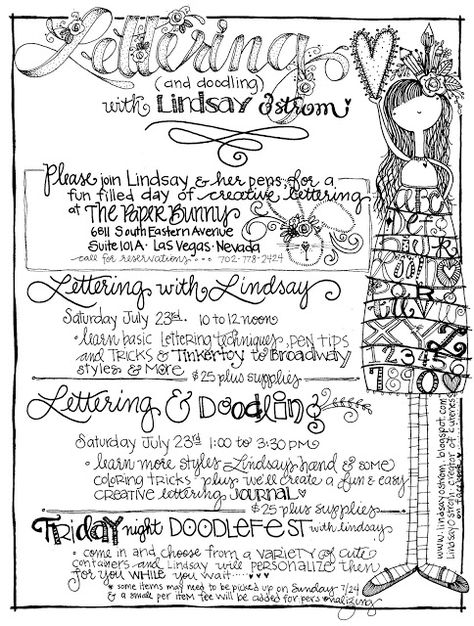 Lettering
(and doodling)
with Lindsay Ostrom
Please join Lindsay & her pens, for a
fun filled day of creative lettering
at The Paper Bunny
6811 South Eastern Avenue
Suite 101A · Las Vegas · Nevada
call for reservations . . . 702-778-2424
Lettering with Lindsay
Saturday July 23rd. 10 to 12 noon
• learn basic lettering techniques, pen tips
and tricks & Tinkertoy to Broadway
styles & more
$25 plus supplies
Lettering & Doodling
Saturday July 23rd 1:00 to 3:30 pm
• learn more styles - Lindsay's hand & some
coloring tricks plus we'll create a fun & easy
creative lettering journal ♥
$25 plus supplies
Friday night DOODLEFEST with lindsay
• come in and choose from a variety of cute
containers and Lindsay will personalize them
for you while you wait . . . . ♥♥♥
* some items may need to be picked up on Sunday 7/24
& a small per item fee will be added for personalizing
www.lindsayostrom.blogspot.com
Lindsay Ostrom: creator of cuteness
on facebook